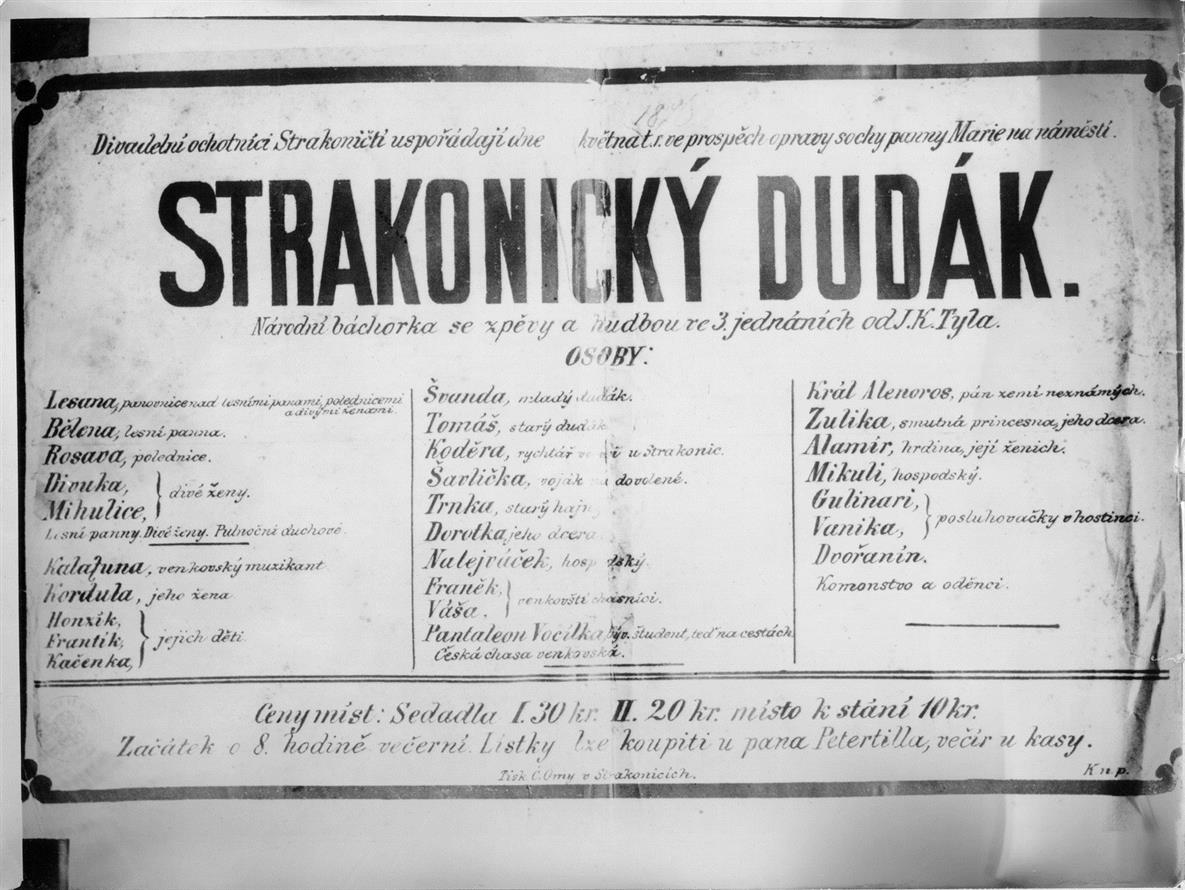 Divadelní ochotníci Strakoničtí uspořádají dne května t. r. ve prospěch opravy sochy panny Marie na náměstí.
STRAKONICKÝ DUDÁK.
Národní báchorka se zpěvy a hudbou ve 3. jednáních od J. K. Tyla.
OSOBY:
Lesana, panovnice nad lesními pannami, polednicemi
a divými ženami.
Bělena, lesní panna.
Rosava, polednice.
Divuka,
Mihulice, } divé ženy.
Lesní panny. Divé ženy. Pulnoční duchové.
Kalafuna, venkovský muzikant
Kordula, jeho žena
Honzík,
Frantík, } jejich děti.
Kačenka,
Švanda, mladý dudák.
Tomáš, starý dudák
Koděra, rychtář u Strakonic.
Šavlička, voják na dovolené.
Trnka, starý hajný
Dorotka, jeho dcera
Nalejváček, hospodský.
Franěk,
Váša. } venkovští chasníci.
Pantaleon Vocilka, býv. študent, teď na cestách.
Česká chasa venkovská.
Král Alenoros, pán zemí neznámých.
Zulika, smutná princesna, jeho dcera.
Alamír, hrdina, její ženich.
Mikuli, hospodský.
Gulinari,
Vanika, } posluhovačky v hostinci.
Dvořanín.
Komonstvo a oděnci.
Ceny míst: Sedadla I. 30 kr. II. 20 kr. místo k stání 10 kr.
Začátek o 8. hodině večerní. Lístky lze koupiti u pana Petertilla, večír u kasy.
Tisk Č. Omy v Strakonicích.
K n. p.